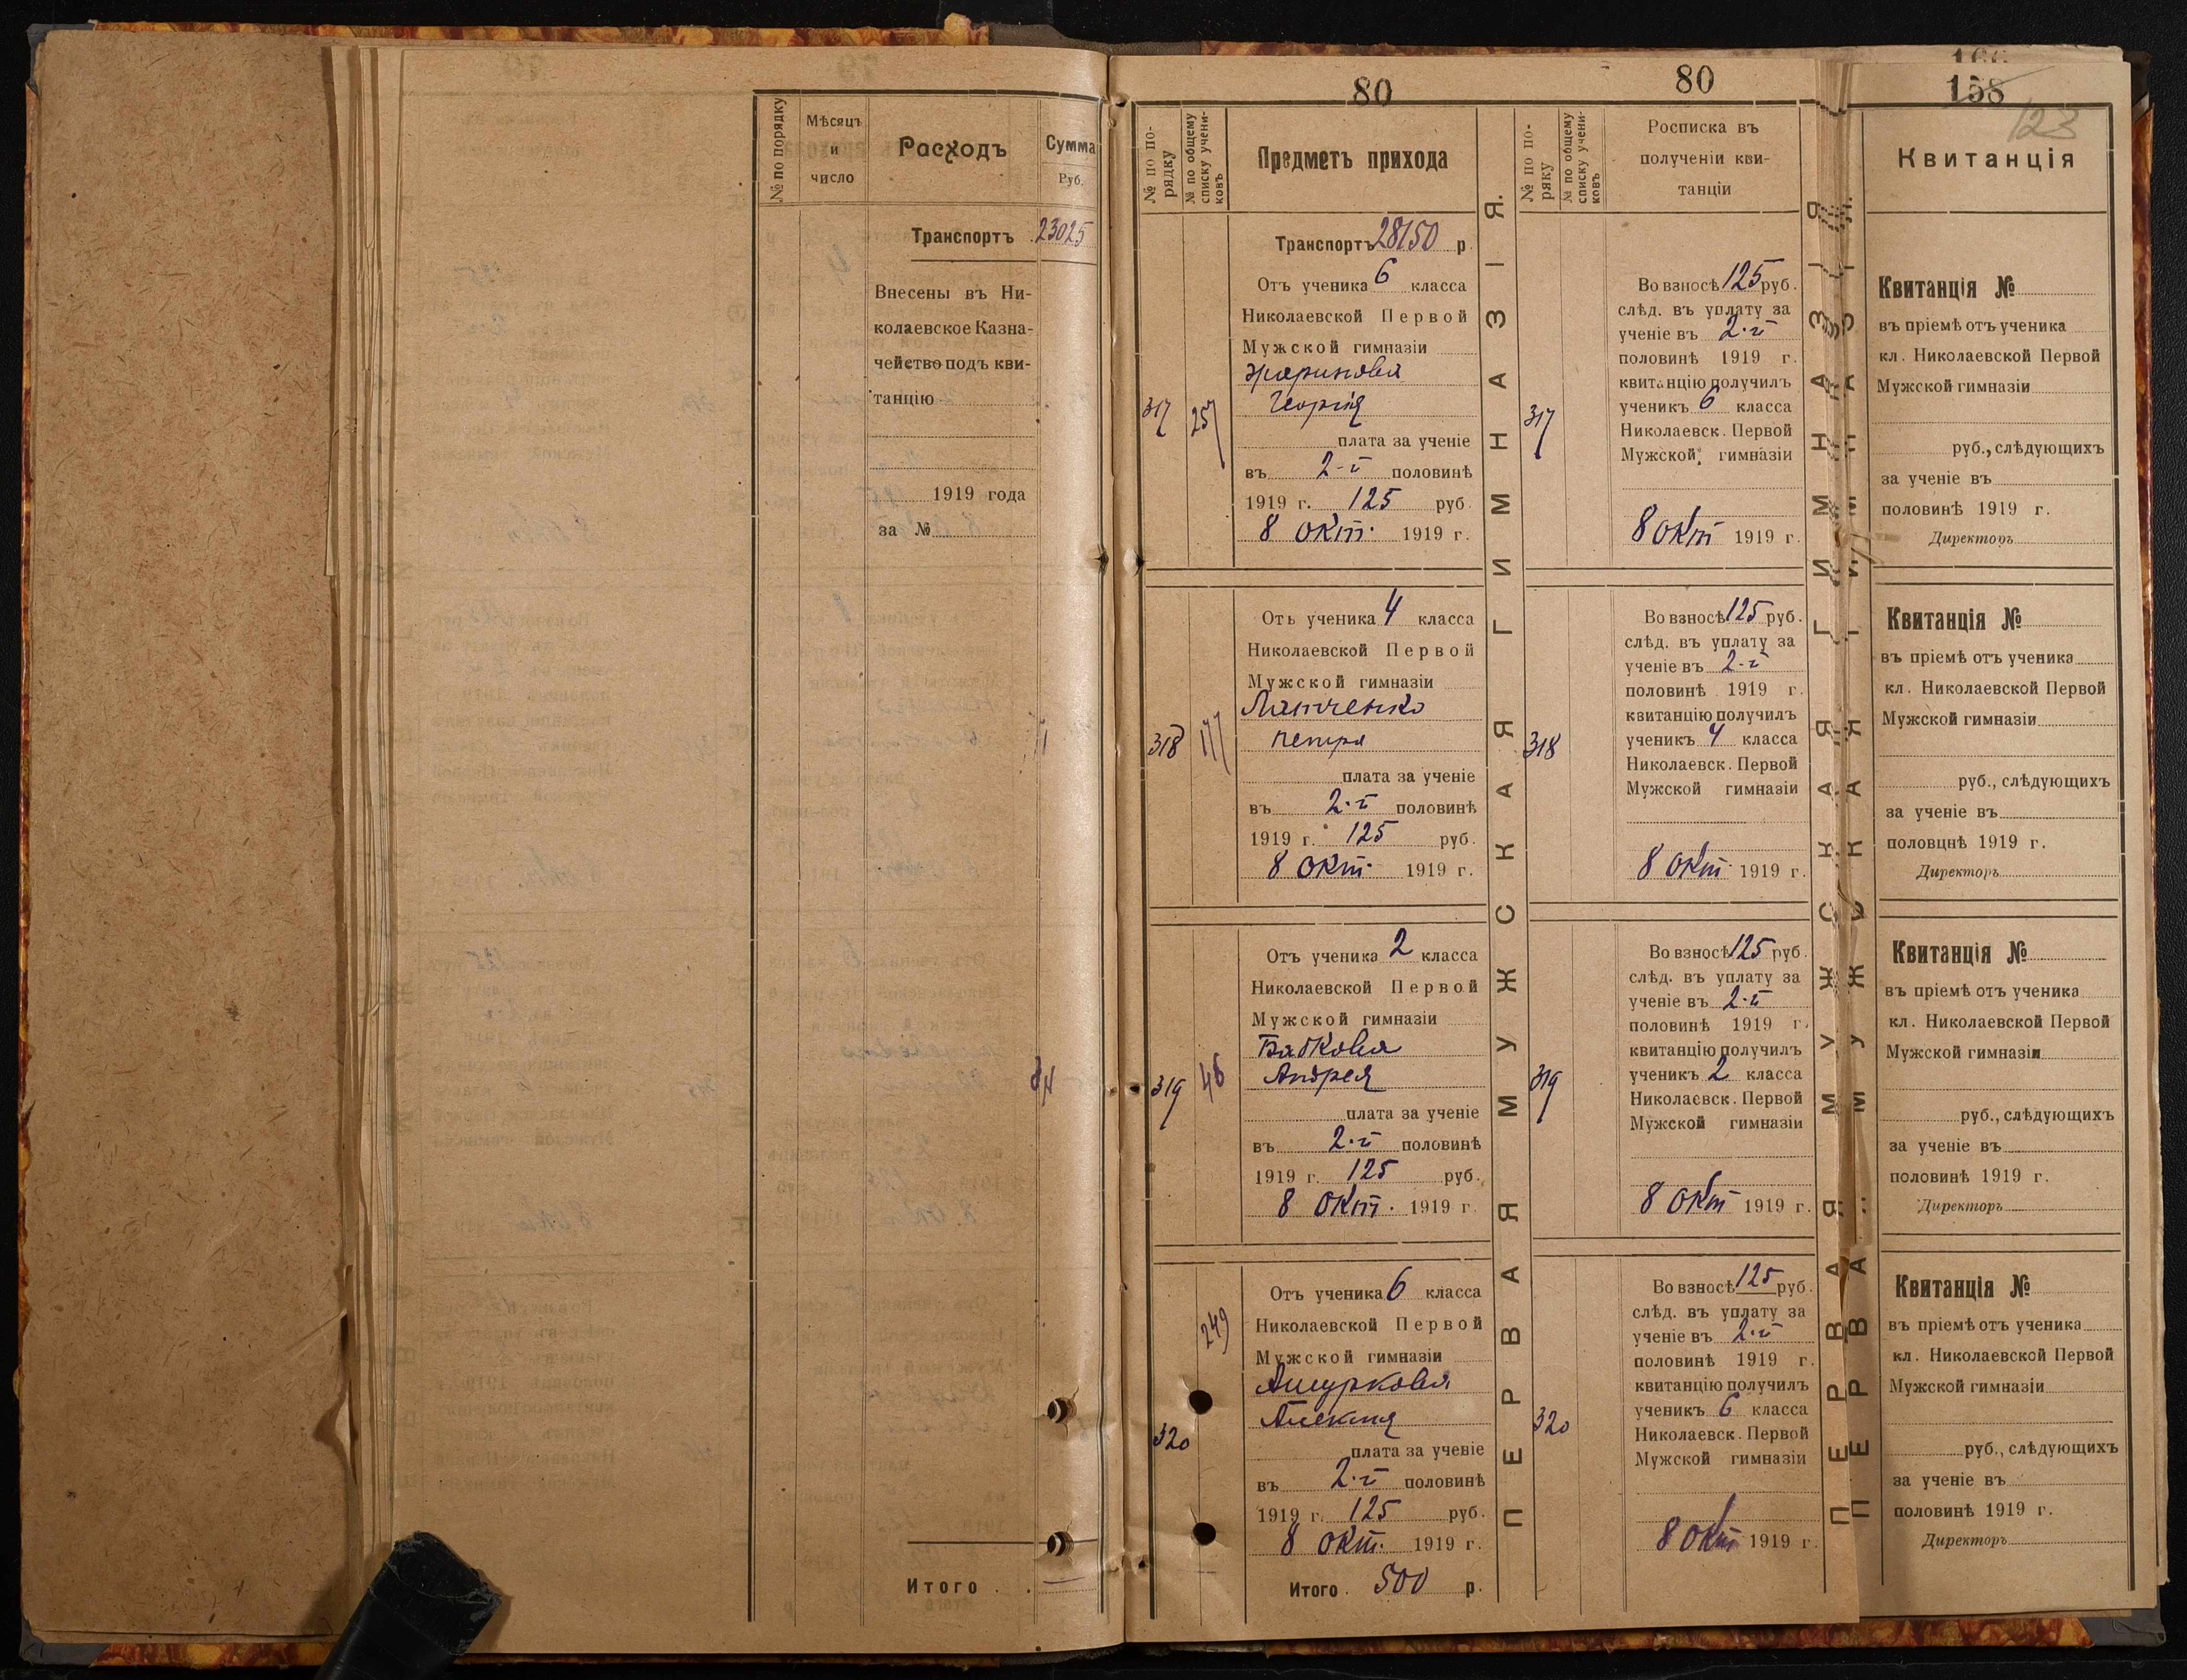 № по порядку
Мѣсяцъ
и
число
Расходъ
Сумма
Руб.
Транспортъ 23025
Внесены въ Ни-
колаевское Казна-
чейство подъ кви-
танцію
1919 года
за №
Итого .
80
№ по по-
рядку
№ по общему
списку учени-
ковъ
Предметъ прихода
Транспортъ 28150 р.
Отъ ученика 6 класса
Николаевской Первой
Мужской гимназіи
Жаринова
Георгія
317
257
плата за ученіе
въ 2-й половинѣ
1919 г. 125 руб.
8 окт. 1919 г.
Отъ ученика 4 класса
Николаевской Первой
Мужской гимназіи
Лапченко
Петра
318
177
плата за ученіе
въ 2-й половинѣ
1919 г. 125 руб.
8 окт. 1919 г.
Отъ ученика 2 класса
Николаевской Первой
Мужской гимназіи
Бабкова
Андрея
319
46
плата за ученіе
въ 2-й половинѣ
1919 г. 125 руб.
8 окт. 1919 г.
249
Отъ ученика 6 класса
Николаевской Первой
Мужской гимназіи
Ашуркова
Алексѣя
320
плата за ученіе
въ 2-й половинѣ
1919 г. 125 руб.
8 окт. 1919 г.
Итого . 500 р.
ПЕРВАЯ МУЖСКАЯ ГИМНАЗІЯ.
80
№ по по-
ряку
№ по общему
списку учени-
ковъ
Росписка въ
полученіи кви-
танціи
Во взносѣ 125 руб.
слѣд. въ уплату за
ученіе въ 2-й
половинѣ 1919 г.
квитанцію получилъ
ученикъ 6 класса
317
Николаевск. Первой
Мужской гимназіи
8 окт 1919 г.
Во взносѣ 125 руб.
слѣд. въ уплату за
ученіе въ 2-й
половинѣ 1919 г.
квитанцію получилъ
ученикъ 4 класса
318
Николаевск. Первой
Мужской гимназіи
8 окт. 1919 г.
Во взносѣ 125 руб.
слѣд. въ уплату за
ученіе въ 2-й
половинѣ 1919 г.
квитанцію получилъ
ученикъ 2 класса
319
Николаевск. Первой
Мужской гимназіи
8 окт 1919 г.
Во взносѣ 125 руб.
слѣд. въ уплату за
ученіе въ 2-й
половинѣ 1919 г.
квитанцію получилъ
ученикъ 6 класса
320
Николаевск. Первой
Мужской гимназіи
8 окт 1919 г.
ПЕРВАЯ МУЖСКАЯ ГИМНАЗІЯ
158
123
Квитанція
Квитанція №
въ пріемѣ отъ ученика
кл. Николаевской Первой
Мужской гимназіи
руб., слѣдующихъ
за ученіе въ
половинѣ 1919 г.
Директоръ
Квитанція №
въ пріемѣ отъ ученика
кл. Николаевской Первой
Мужской гимназіи
руб., слѣдующихъ
за ученіе въ
половцнѣ 1919 г.
Директоръ
Квитанція №
въ пріемѣ отъ ученика
кл. Николаевской Первой
Мужской гимназіи
руб., слѣдующихъ
за ученіе въ
половинѣ 1919 г.
Директоръ
Квитанція №
въ пріемѣ отъ ученика
кл. Николаевской Первой
Мужской гимназіи
руб., слѣдующихъ
за ученіе въ
половинѣ 1919 г.
Директоръ